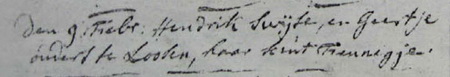 Den 9 Febr. Hendrik Swijse, en Geertje
ouders te Loolen, haar kint Fennegje.